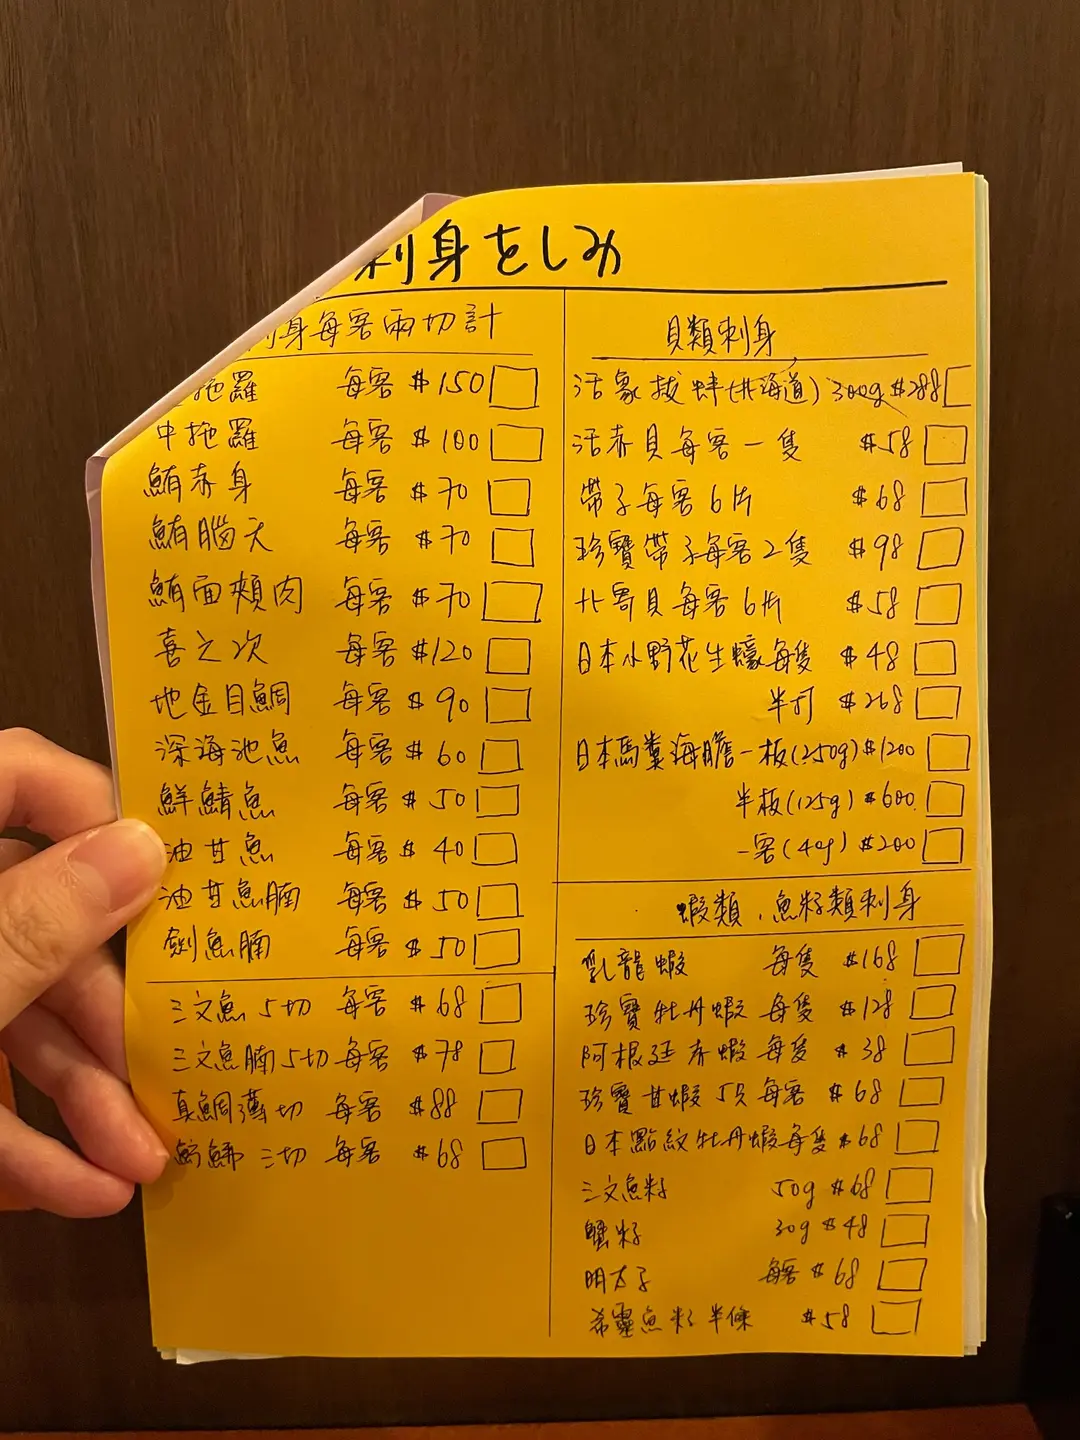 刺身をしみ
刺身每客兩切計
拖羅 每客 $150
中拖羅 每客 $100
鮪赤身 每客 $70
鮪腦天 每客 $70
鮪面頰肉 每客 $70
喜之次 每客 $120
地金目鯛 每客 $90
深海池魚 每客 $60
鮮鯖魚 每客 $50
油甘魚 每客 $40
油甘魚腩 每客 $50
劍魚腩 每客 $50
三文魚5切 每客 $68
三文魚腩5切 每客 $78
真鯛薄切 每客 $88
三切 每客 $68
貝類刺身
活象拔蚌(北海道) 300g $288
活赤貝每客一隻 $58
帶子每客6片 $68
珍寶帶子每客2隻 $98
北寄貝每客6片 $58
日本小野花生蠔每隻 $48
半打 $268
日本馬糞海膽一板(250g) $1200
半板(125g) $600
一客(40g) $200
蝦類、魚籽類刺身
乳龍蝦 每隻 $168
珍寶牡丹蝦 每隻 $128
阿根廷赤蝦 每隻 $38
珍寶甘蝦5只 每客 $68
日本點紋牡丹蝦每隻 $68
三文魚籽 50g $68
蟹籽 30g $48
明太子 每客 $68
希靈魚籽半條 $58